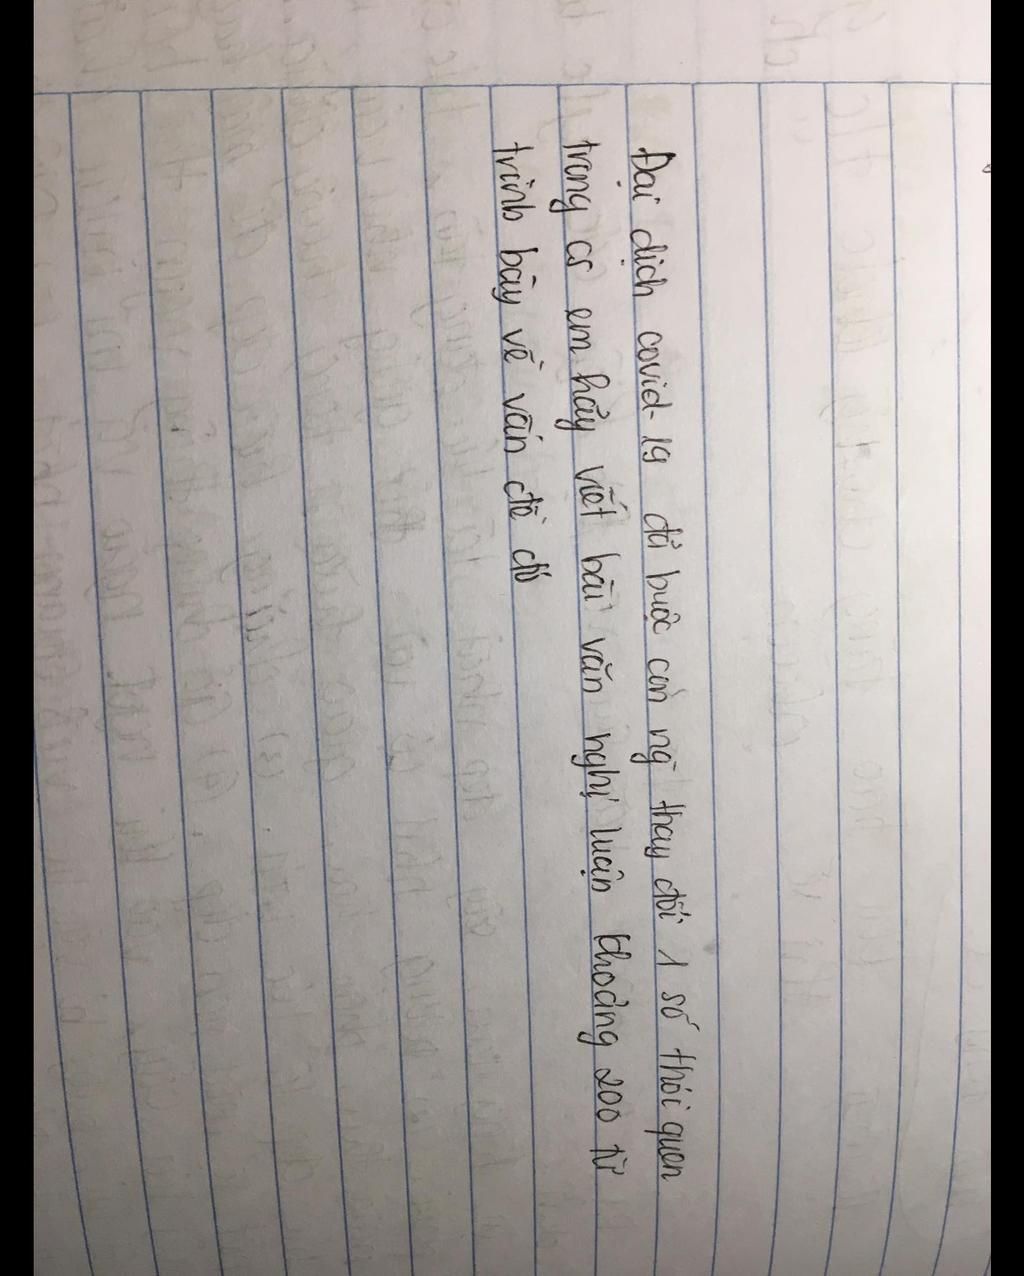 Đại dịch covid-19 đã buộc con ng` thay đổi 1 số thói quen
trong cs em hãy viết bài văn nghị luận khoảng 200 từ
trình bày về vấn đề đó